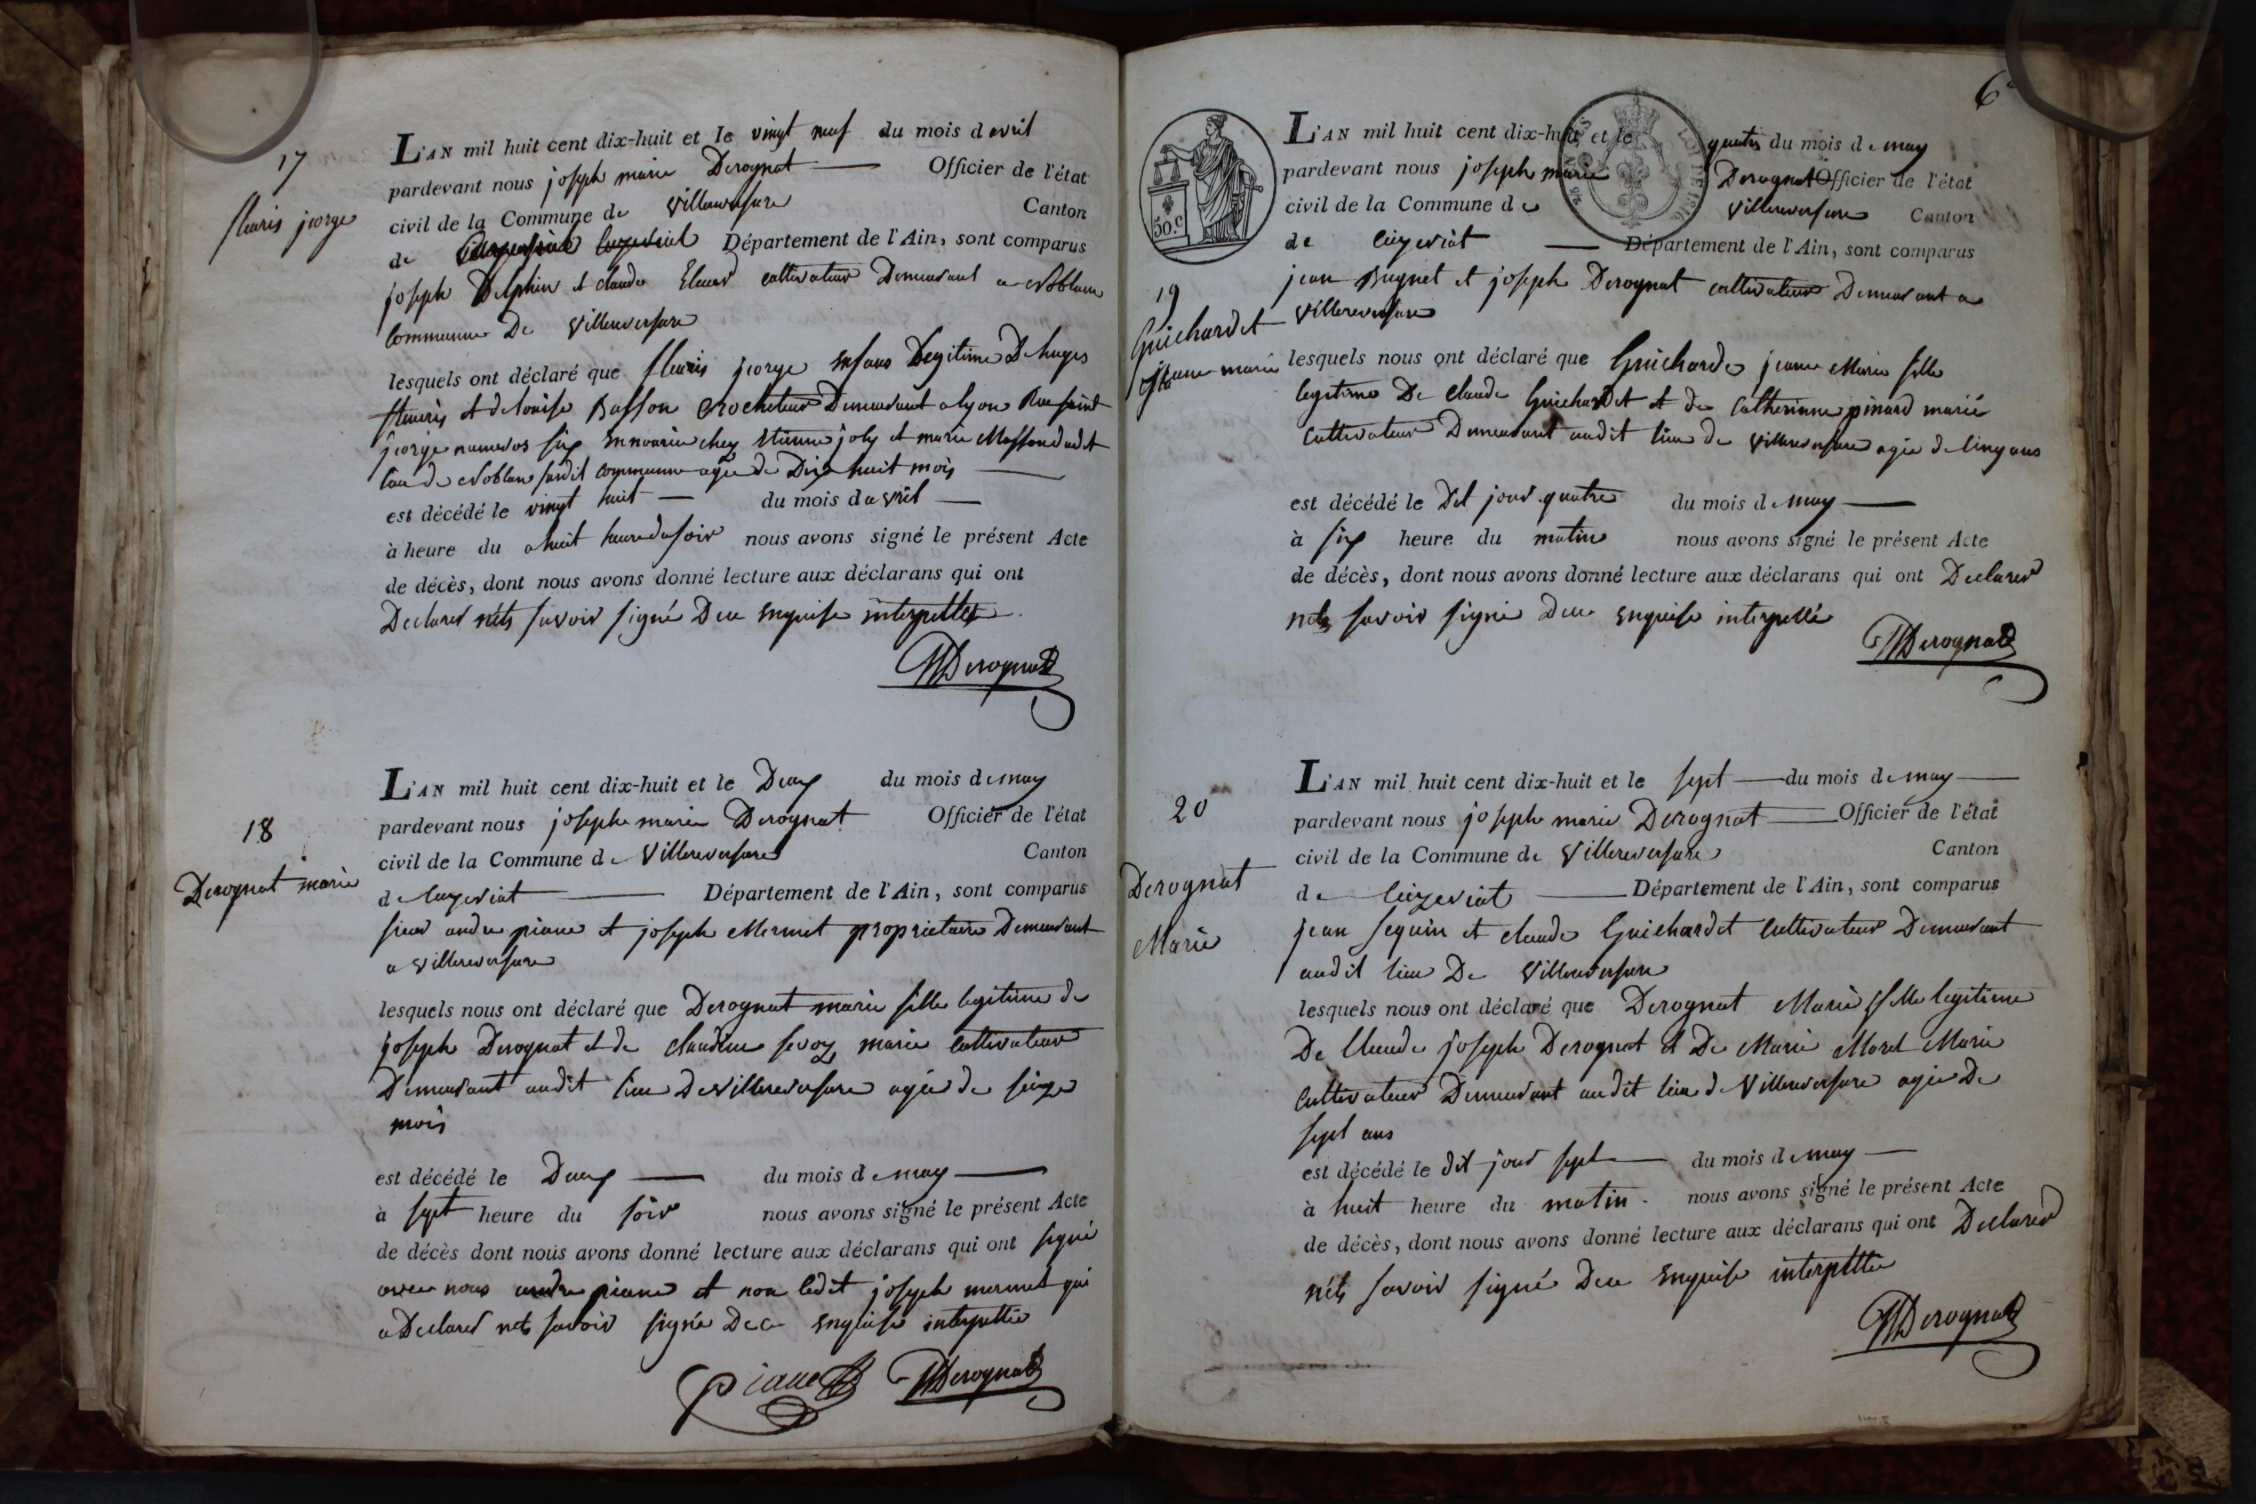 17
fleuris jeorge
L'AN mil huit cent dix-huit et le vingt neuf du mois d avril
pardevant nous joseph marie Derognat Officier de l'état
civil de la Commune de villereversure Canton
de Ceyzeriat Département de l'Ain, sont comparus
joseph Delphin et claude cultivateur Demeurant a Noblens
commune De villereversure
lesquels ont déclaré que fleuris jeorge enfans Legitime De hugues
fleuris et de louise Basson crocheteur Demeurant a lyon Rue saint
jeorge numeros six en nourice chez etienne joly et marie Masson dudit
lieu de Noblens susdit commune agée de Dix huit mois
est décédé le vingt huit du mois d avril
à heure du a huit heure du soir nous avons signé le présent Acte
de décès, dont nous avons donné lecture aux déclarans qui ont
Declarer nets savoir signé Deu enquise interpellé
Derognat
18
Derognat marie
L'AN mil huit cent dix-huit et le Deux du mois de may
pardevant nous joseph marie Derognat Officier de l'état
civil de la Commune de Villereversure Canton
de Ceyzeriat Département de l'Ain, sont comparus
sieur andre piane et joseph Mermet propriétaire Demeurant
a villereversure
lesquels nous ont déclaré que Derognat marie fille legitime de
joseph Derognat et de claudine sevoz marie cultivateur
Demeurant audit lieu De villereversure agée de seize
mois
est décédé le Deux du mois de may
à sept heure du soir nous avons signé le présent Acte
de décès dont nous avons donné lecture aux déclarans qui ont signé
avec nous andre piane et non ledit joseph mermet qui
a Declarer nets savoir signé Deu enquise interpellé
Piane Derognat
6
50.C
19
Guichardet
jeanne marie
L'AN mil huit cent dix-huit et le quatre du mois de may
pardevant nous joseph marie Derognat Officier de l'état
civil de la Commune de villereversure Canton
de Ceyzeriat Département de l'Ain, sont comparus
jean Bugnet et joseph Derognat cultivateur Demeurant a
villereversure
lesquels nous ont déclaré que Guichardet jeanne Marie fille
legitime De claude Guichardet et de Catherinne pinard marié
cultivateur Demeurant audit lieu de villereversure agée de cinq ans
est décédé le Dit jour quatre du mois de may
à six heure du matin nous avons signé le présent Acte
de décès, dont nous avons donné lecture aux déclarans qui ont Declarer
nets savoir signé Deu enquise interpellé
Derognat
20
Derognat
Marie
L'AN mil huit cent dix-huit et le sept du mois de may
pardevant nous joseph marie Derognat Officier de l'état
civil de la Commune de Villereversure Canton
de Ceyzeriat Département de l'Ain, sont comparus
jean seguin et claude Guichardet cultivateur Demeurant
audit lieu De villereversure
lesquels nous ont déclaré que Derognat Marie fille legitime
De Claude joseph Derognat et De Marie Morel Marie
cultivateur Demeurant audit lieu de Villereversure agée De
sept ans
est décédé le dit jour sept du mois de may
à huit heure du matin nous avons signé le présent Acte
de décès, dont nous avons donné lecture aux déclarans qui ont Declarer
nets savoir signé Deu enquise interpellé
Derognat